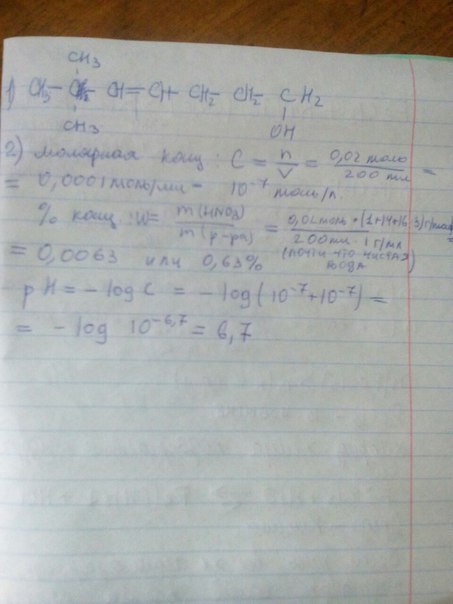 CH₃
1) CH₃ - C - CH = CH - CH₂ - CH₂ - CH₂
CH₃ OH
2) молярная конц: C = n/V = 0,02 моль / 200 мл =
= 0,0001 моль/мл = 10⁻⁷ моль/л.
% конц: w = m(HNO₃) / m(р-ра) = 0,02 моль · (1+14+16·3) г/моль / 200 мл · 1 г/мл =
(почти что чистая вода)
= 0,0063 или 0,63%
pH = - log C = - log (10⁻⁷ + 10⁻⁷) =
= - log 10⁻⁶,⁷ = 6,7